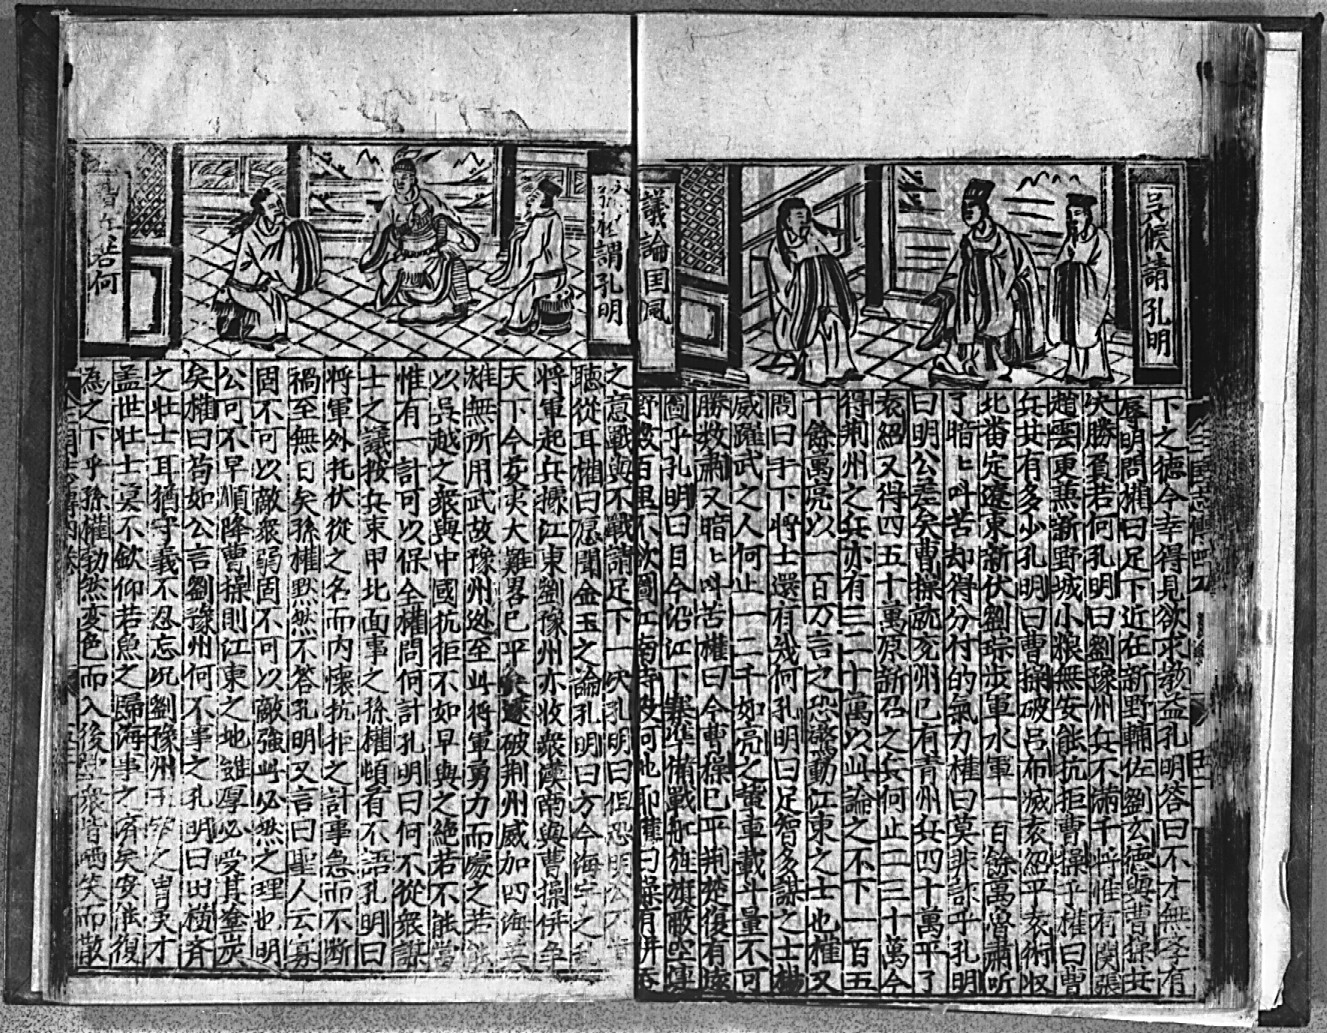 吳侯請孔明
議論国風
下之德今幸得見欲求敎益孔明答曰不才無學有
辱明問權曰足下近在新野輔佐劉玄德與曹操共
决勝負若何孔明曰劉豫州兵不滿千將惟有関張
趙雲更兼新野城小粮無安能抗拒曹操乎權曰曹
兵共有多少孔明曰曹操破吕布㓕袁紹平袁術收
北畨定遼東新伏劉琮步軍水軍一百餘萬魯肅听
了暗〻叫苦却得分付的氣力權曰莫非詐乎孔明
曰明公差矣曹操就兖州已有青州兵四十萬平了
袁紹又得四五十萬原新召之兵何止二三十萬今
得荆州之兵亦有三二十萬以此論之不下一百五
十餘萬亮以一百万言之恐驚動江東之士也權又
問曰手下將士還有幾何孔明曰足智多謀之士
威躍武之人何止一二千如亮之輩車載斗量不可
勝救肅又暗〻叫苦權曰今曹操已平荆楚復有
圖乎孔明曰目今沿江下寨準備戰舡旌旗蔽空連
野數百里不欲圖江南待取何地耶權曰操有併吞
權謂孔明
若何
之意戰與不戰請足下一决孔明曰但恐明公不肯
聽從耳權曰愿聞金玉之論孔明曰方今海宇之亂
將軍起兵據江東劉豫州亦收衆漢南與曹操併爭
天下今芟夷大難畧已平矣遂破荆州威加四海英
雄無所用武故豫州迯至此將軍勇力而處之若能
以吳越之衆與中國抗拒不如早與之絶若不能當
惟有一計可以保全權問何計孔明曰何不從衆謀
士之議按兵束甲北面事之孫權頓首不語孔明曰
將軍外托伏從之名而内懷抗拒之計事急而不断
禍至無日矣孫權黙然不答孔明又言曰聖人云寡
固不可以敵衆弱固不可以敵強此必然之理也明
公可不早順降曹操則江東之地雖厚必受其塗炭
矣權曰苟如公言劉豫州何不事之孔明曰田横斉
之壯士耳猶守義不忍忘况劉豫州王室之胄英才
盖世壯士莫不欽仰若魚之歸海事之不濟矣安能復
為之下乎孫權勃然変色而入後堂衆皆哂笑而散